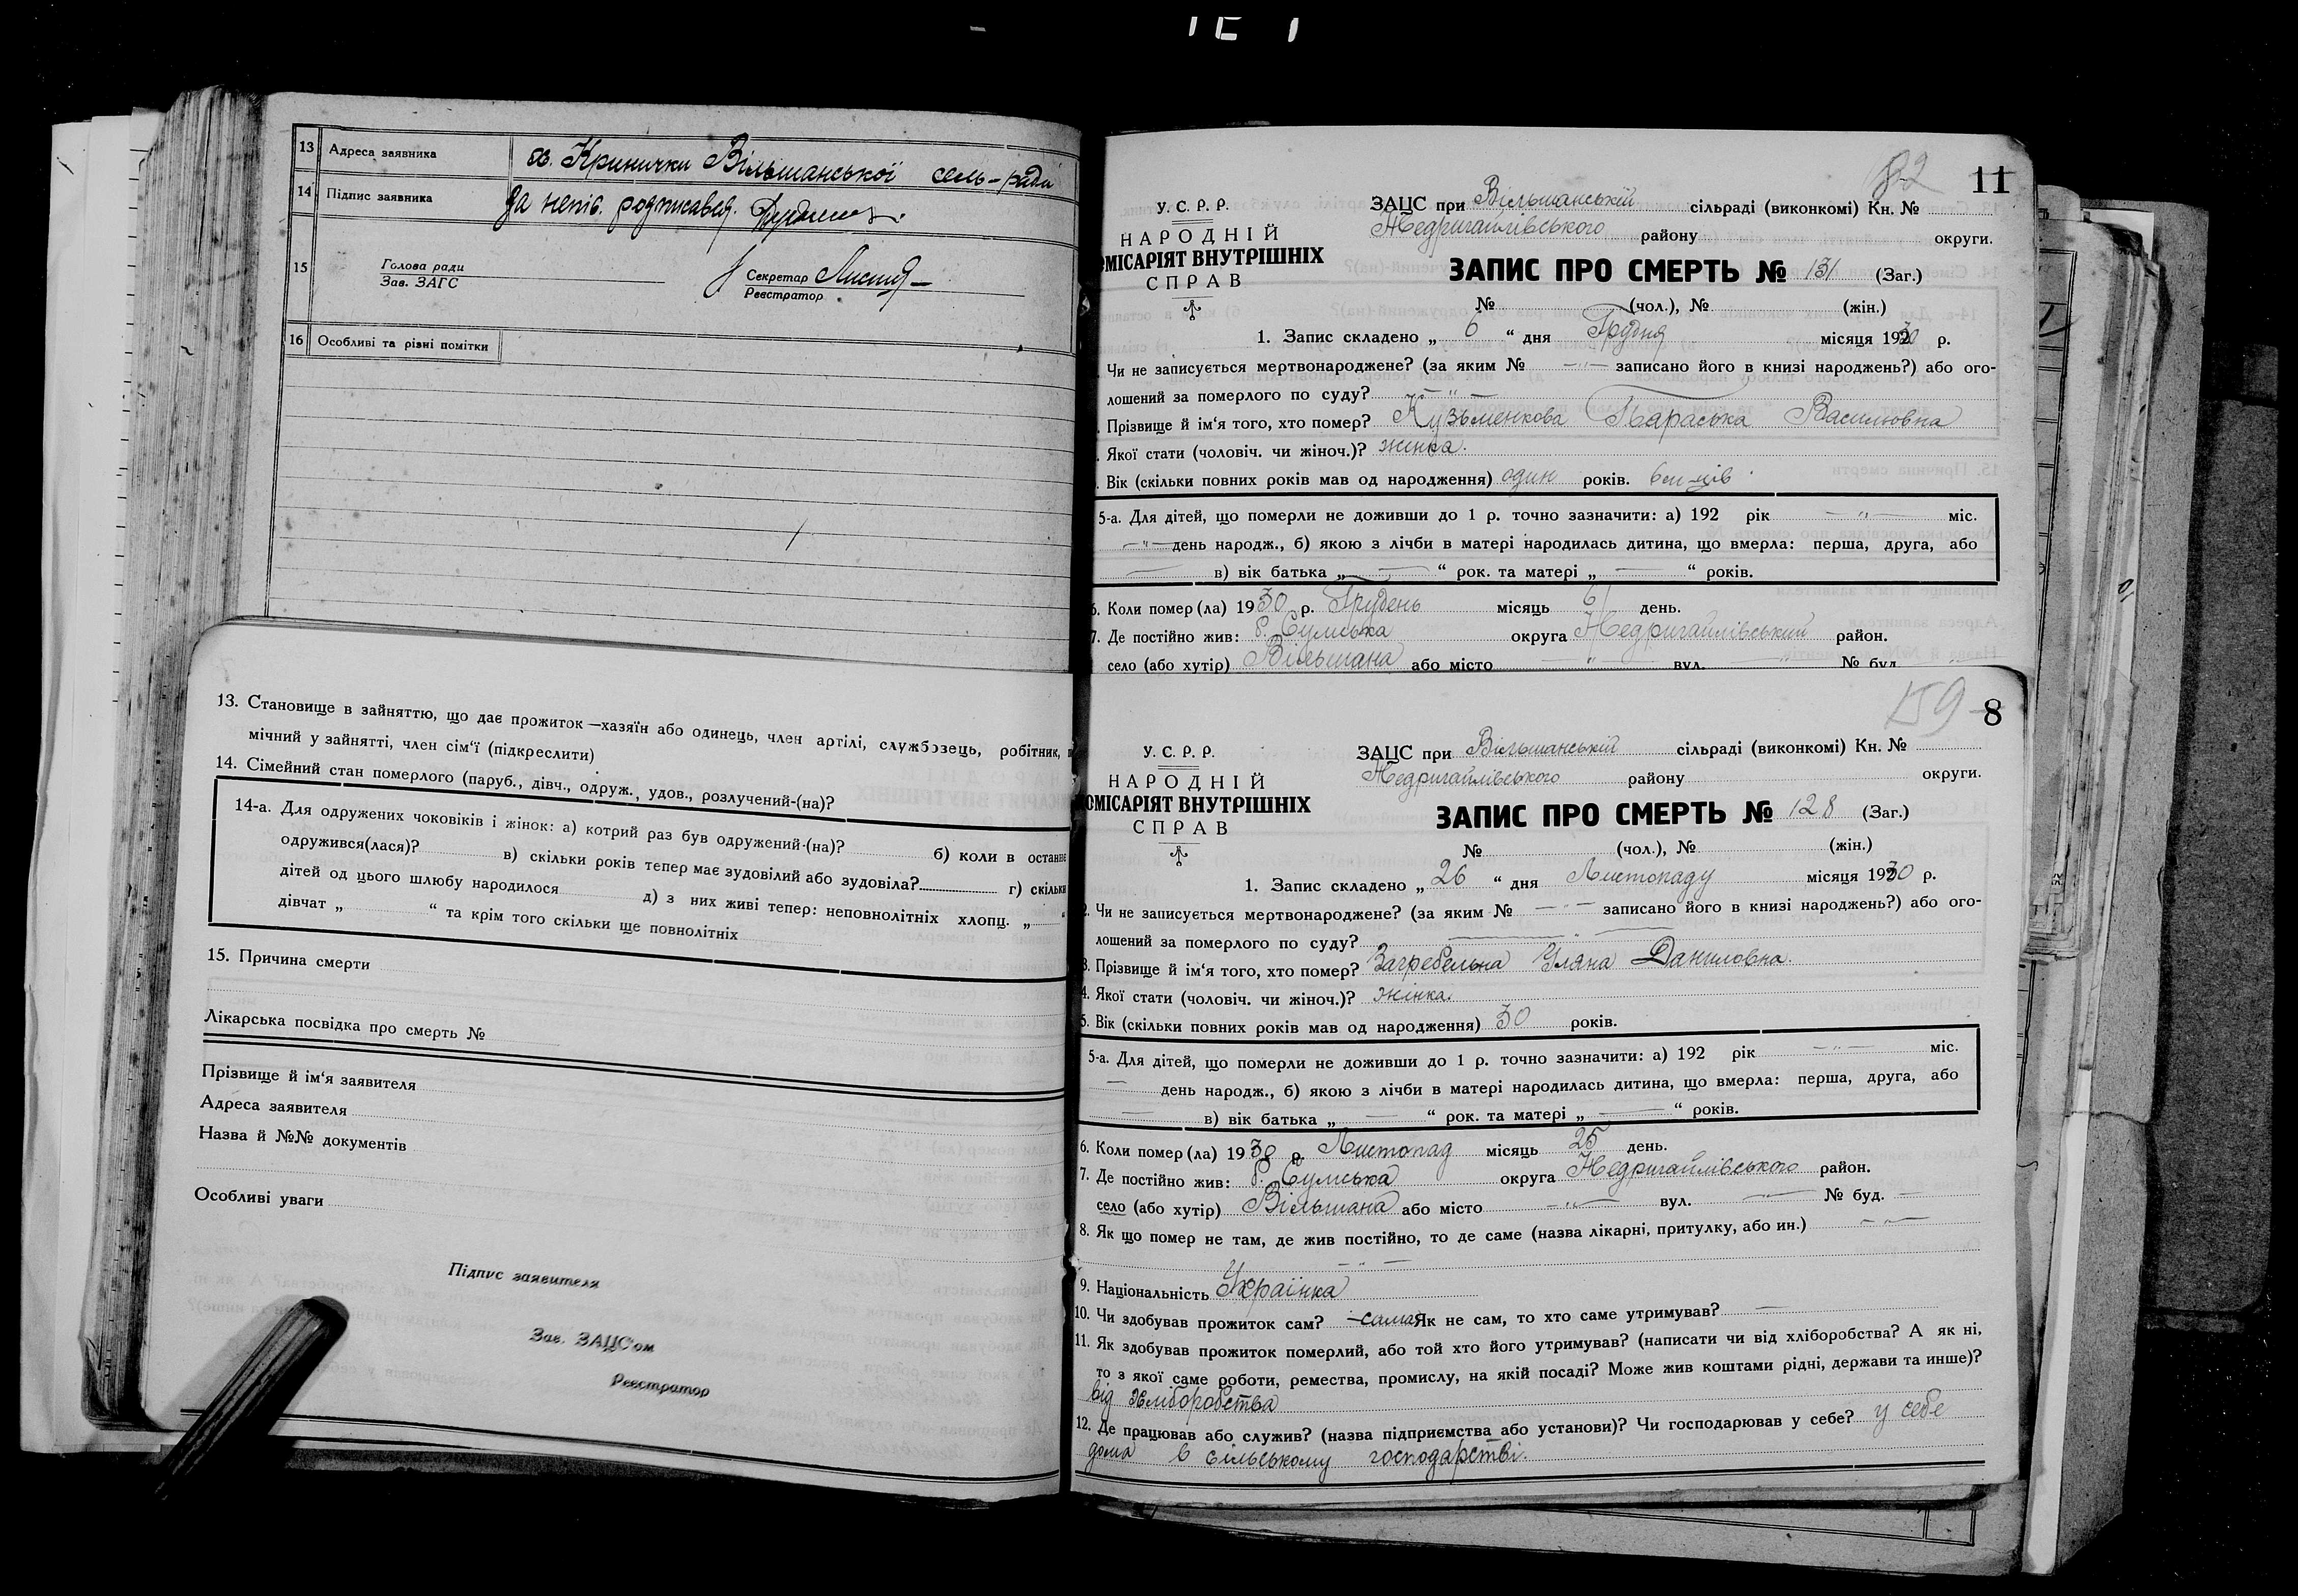 13 Адреса заявника Кринички Вільшанської сель-ради
14 Підпис заявника За непис. розписався.
15 Голова ради
Зав. ЗАГС
Секретар
Реєстратор
16 Особливі та різні помітки
13. Становище в зайняттю, що дає прожиток—хазяїн або одинець, член артілі, службовець, робітник,
мічний у зайнятті, член сім'ї (підкреслити)
14. Сімейний стан померлого (паруб., дівч., одруж., удов., розлучений-(на)?
14-а. Для одружених чоковіків і жінок: а) котрий раз був одружений-(на)? б) коли в останнє
одружився(лася)? в) скільки років тепер має зудовілий або зудовіла? г) скільки
дітей од цього шлюбу народилося д) з них живі тепер: неповнолітніх хлопц. „ “
дівчат „ “ та крім того скільки ще повнолітніх
15. Причина смерти
Лікарська посвідка про смерть №
Прізвище й ім'я заявителя
Адреса заявителя
Назва й №№ документів
Особливі уваги
Підпис заявителя
Зав. ЗАЦС'ом
Реєстратор
82 11
У. С. Р. Р.
НАРОДНІЙ
ОМІСАРІЯТ ВНУТРІШНІХ
СПРАВ
ЗАЦС при Вільшанській сільраді (виконкомі) Кн. №
Недригайлівського району округи.
ЗАПИС ПРО СМЕРТЬ № 131 (Заг.)
№ (чол.), № (жін.)
1. Запис складено „ 6 “ дня Грудня місяця 1930 р.
Чи не записується мертвонароджене? (за яким № —"— записано його в книзі народжень?) або ого-
лошений за померлого по суду? —"—
Прізвище й ім'я того, хто помер? Кузьменкова Параська Василювна
Якої стати (чоловіч. чи жіноч.)? жінка.
Вік (скільки повних років мав од народження) один років. 6 м-ців
5-а. Для дітей, що померли не доживши до 1 р. точно зазначити: а) 192 рік —"— міс.
—"— день народж., б) якою з лічби в матері народилась дитина, що вмерла: перша, друга, або
— в) вік батька „ — “ рок. та матері „ — “ років.
6. Коли помер (ла) 1930 р. Грудень місяць 6 день.
7. Де постійно жив: б. Сумська округа Недригайлівський район.
село (або хутір) Вільшана або місто —"— вул. —"— № буд.
159 8
У. С. Р. Р.
НАРОДНІЙ
ОМІСАРІЯТ ВНУТРІШНІХ
СПРАВ
ЗАЦС при Вільшанській сільраді (виконкомі) Кн. №
Недригайлівського району округи.
ЗАПИС ПРО СМЕРТЬ № 128 (Заг.)
№ (чол.), № (жін.)
1. Запис складено „ 26 “ дня Листопаду місяця 1930 р.
2. Чи не записується мертвонароджене? (за яким № —"— записано його в книзі народжень?) або ого-
лошений за померлого по суду? — " —
3. Прізвище й ім'я того, хто помер? Загребельна Уляна Даниловна.
4. Якої стати (чоловіч. чи жіноч.)? жінка.
5. Вік (скільки повних років мав од народження) 30 років.
5-а. Для дітей, що померли не доживши до 1 р. точно зазначити: а) 192 рік —"— міс.
— день народж., б) якою з лічби в матері народилась дитина, що вмерла: перша, друга, або
— в) вік батька „ — “ рок. та матері „ — “ років.
6. Коли помер (ла) 1930 р. Листопад місяць 25 день.
7. Де постійно жив: б. Сумська округа Недригайлівського район.
село (або хутір) Вільшана або місто —"— вул. —"— № буд. —
8. Як що помер не там, де жив постійно, то де саме (назва лікарні, притулку, або ин.) —"—
— " —
9. Національність Українка
10. Чи здобував прожиток сам? —сама Як не сам, то хто саме утримував? —
11. Як здобував прожиток померлий, або той хто його утримував? (написати чи від хліборобства? А як ні,
то з якої саме роботи, ремества, промислу, на якій посаді? Може жив коштами рідні, держави та инше)?
від хліборобства
12. Де працював або служив? (назва підприємства або установи)? Чи господарював у себе? у себе
дома в сільському господарстві.